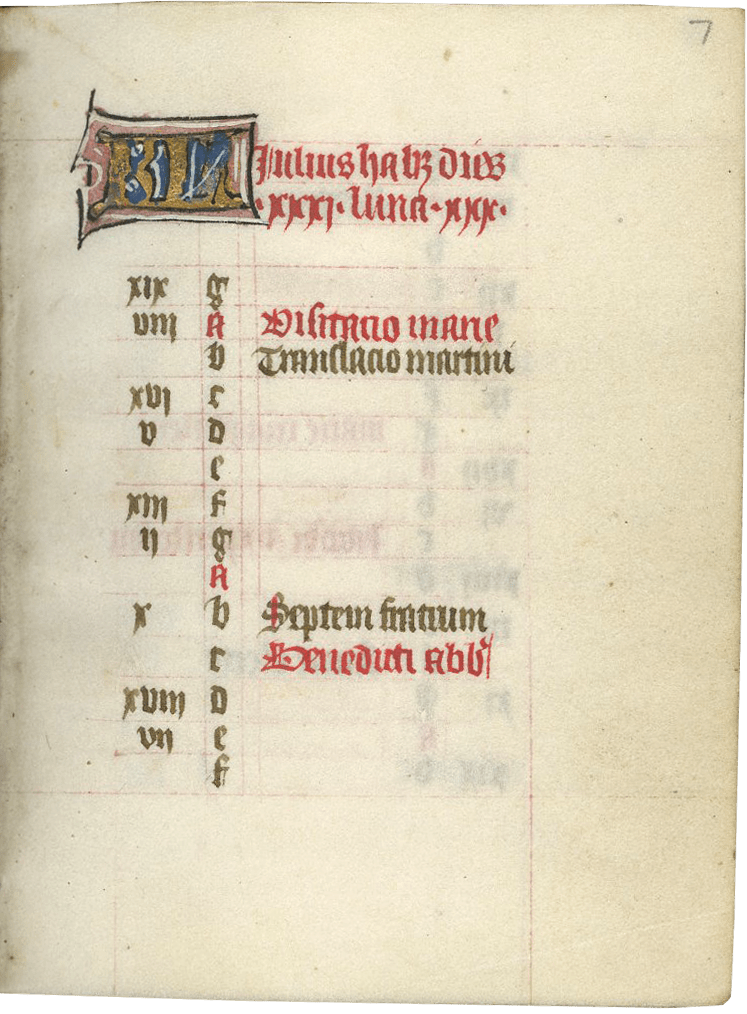 7
KL Julius habꝫ dies
·xxxi· luna·xxx·
xix g
viii A Visitacio marie
b Translacio martini
xvi c
v d
e
xiii f
ii g
A
x b Septem fratrum
c Benedicti abb̃
xviii d
vii e
f